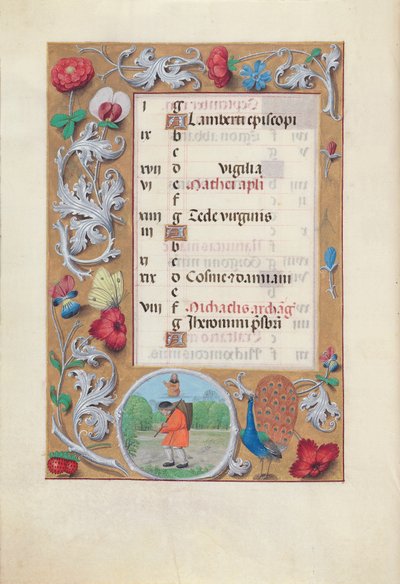 i g
A Lamberti episcopi
ix b
c
xvii d vigilia
vi e Mathei apli
f
xiiii g Tecle virginis
iii A
b
xi c
xix d Cosme ⁊ damiani
e
viii f Michaelis archãg
g Iheronimi p̃sbri
A